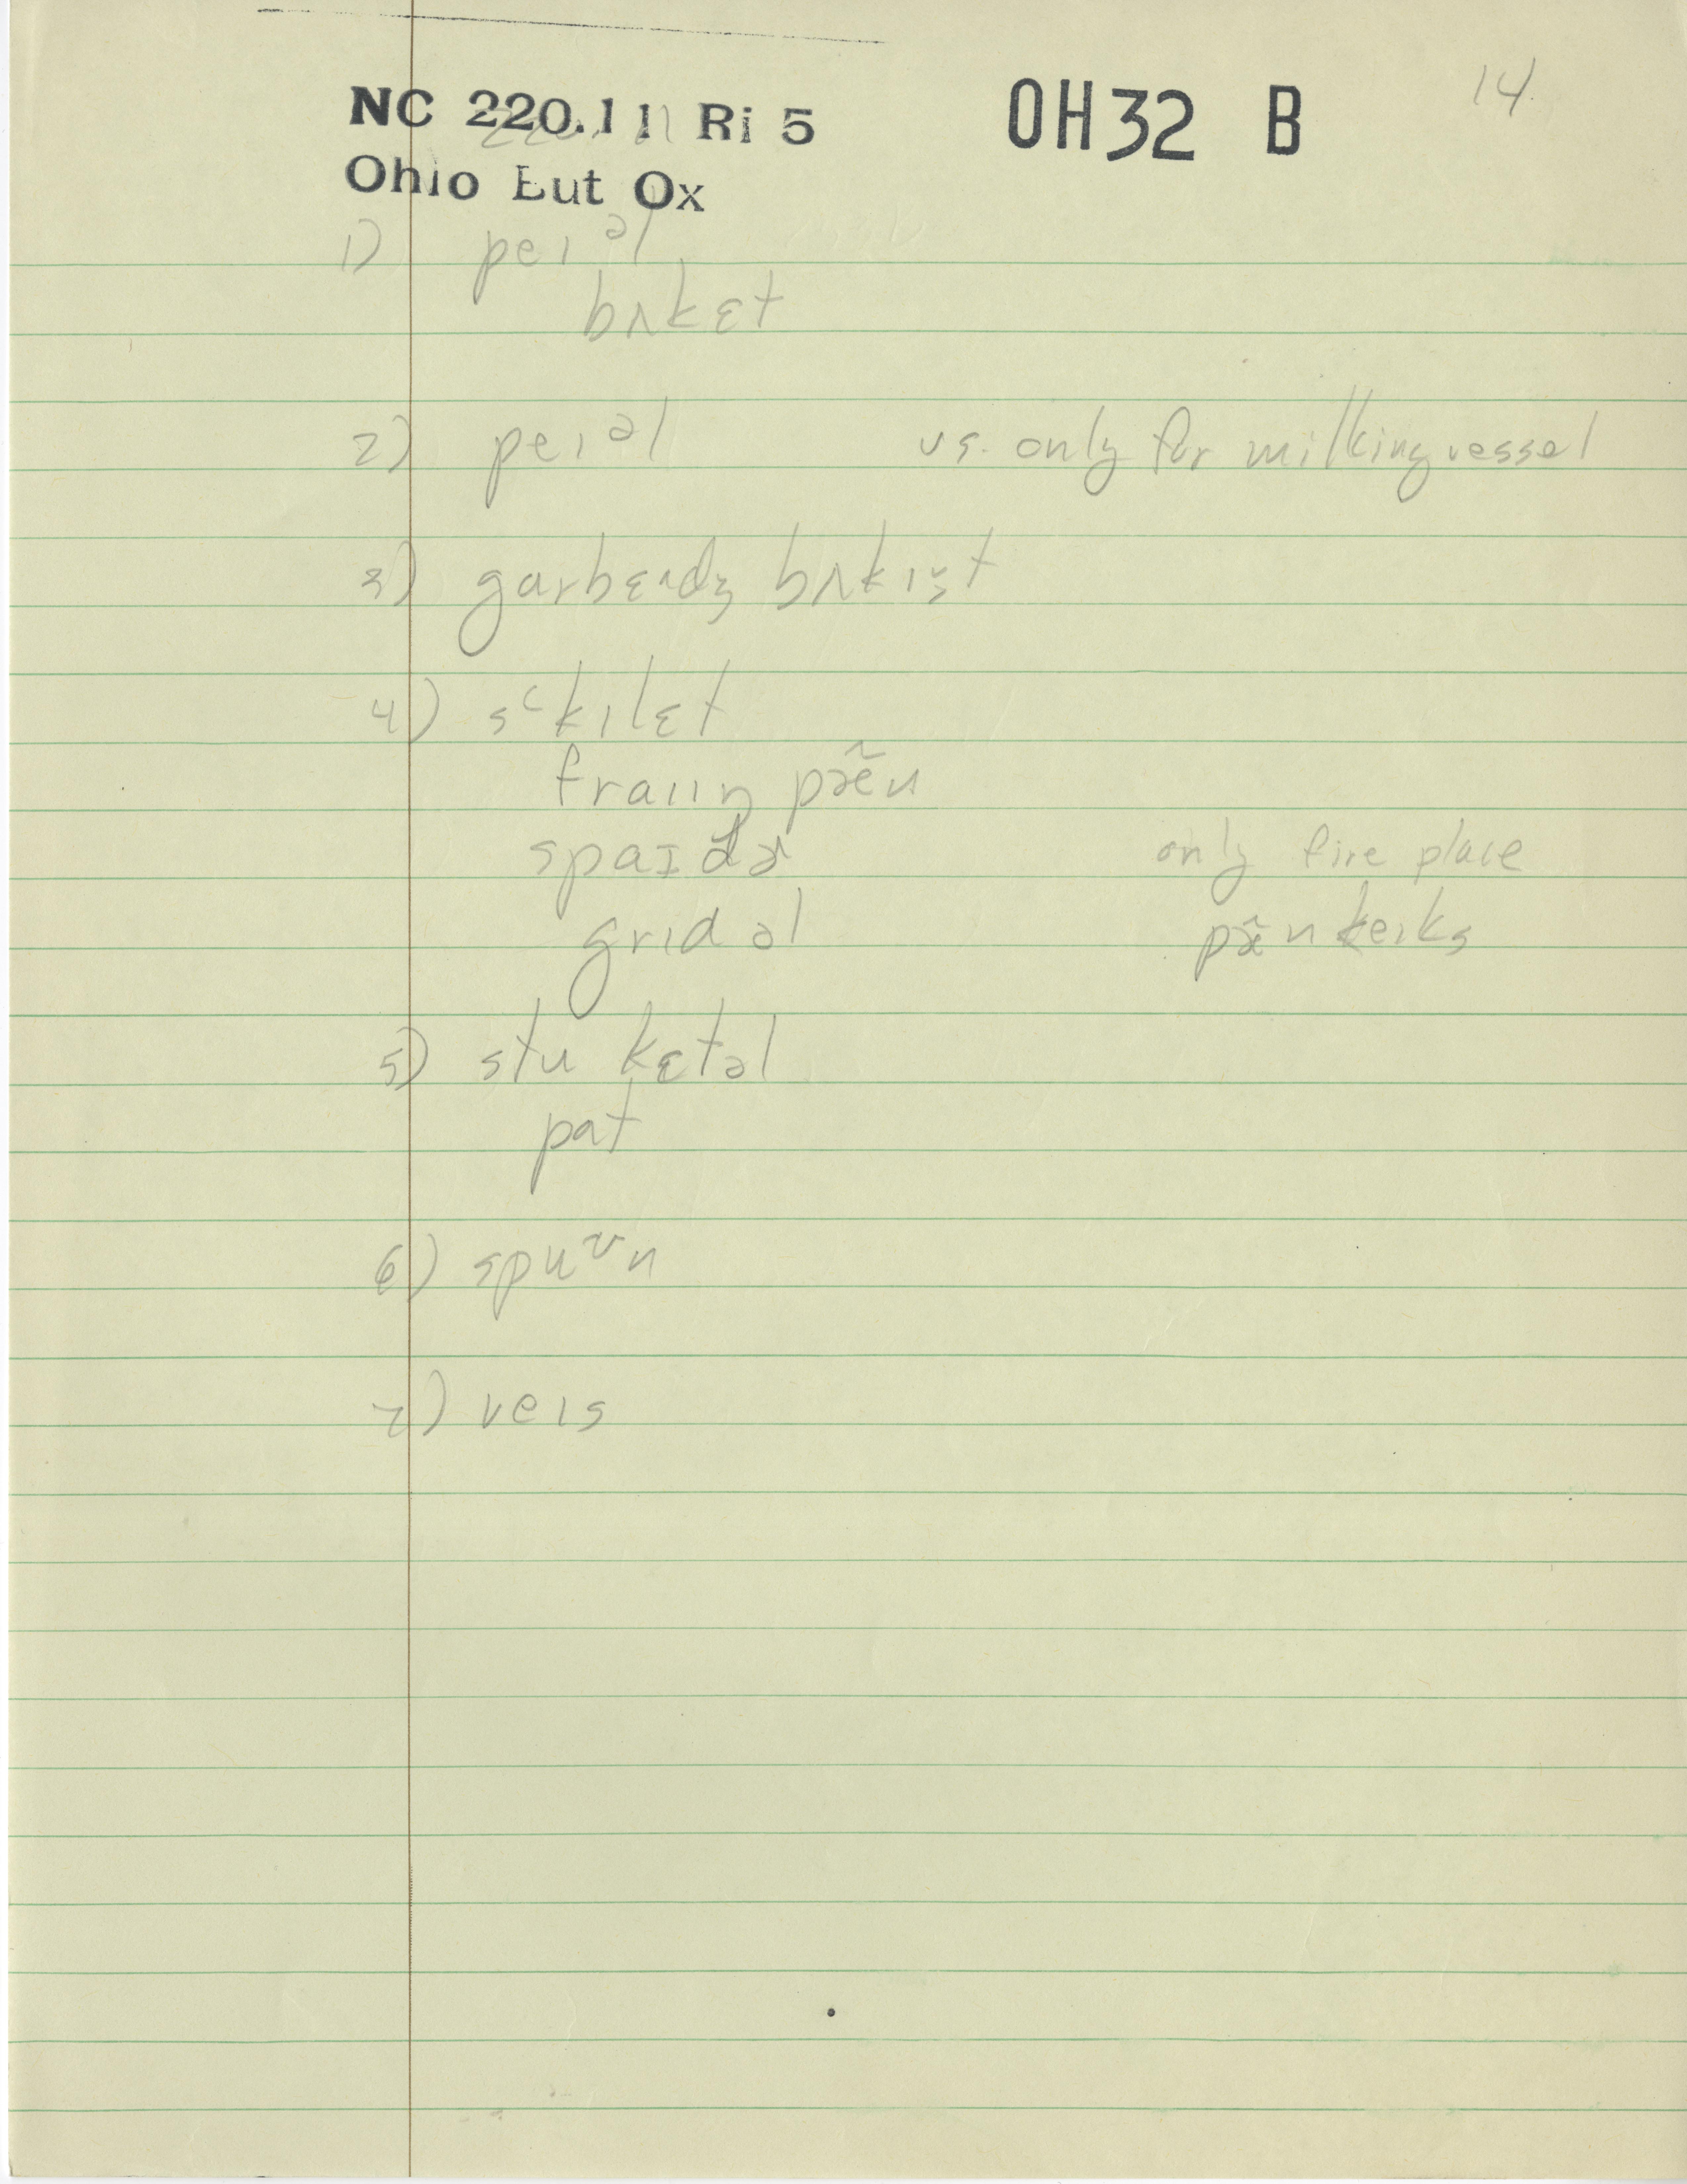 NC 220.11 Ri 5 OH32 B 14.
Ohio Eut Ox
1) peɪəl
bʌkɛt
2) peɪəl vs. only for milking vessel
3) garbɛɪdʒ bʌkɪt
4) sᶜkɪlɛt
fraɪɪŋ pæ̃n
spaɪdɚ only fire place
grɪdəl pæ̃nkeɪks
5) stu kɛtəl
pat
6) spuᵘn
7) veɪs